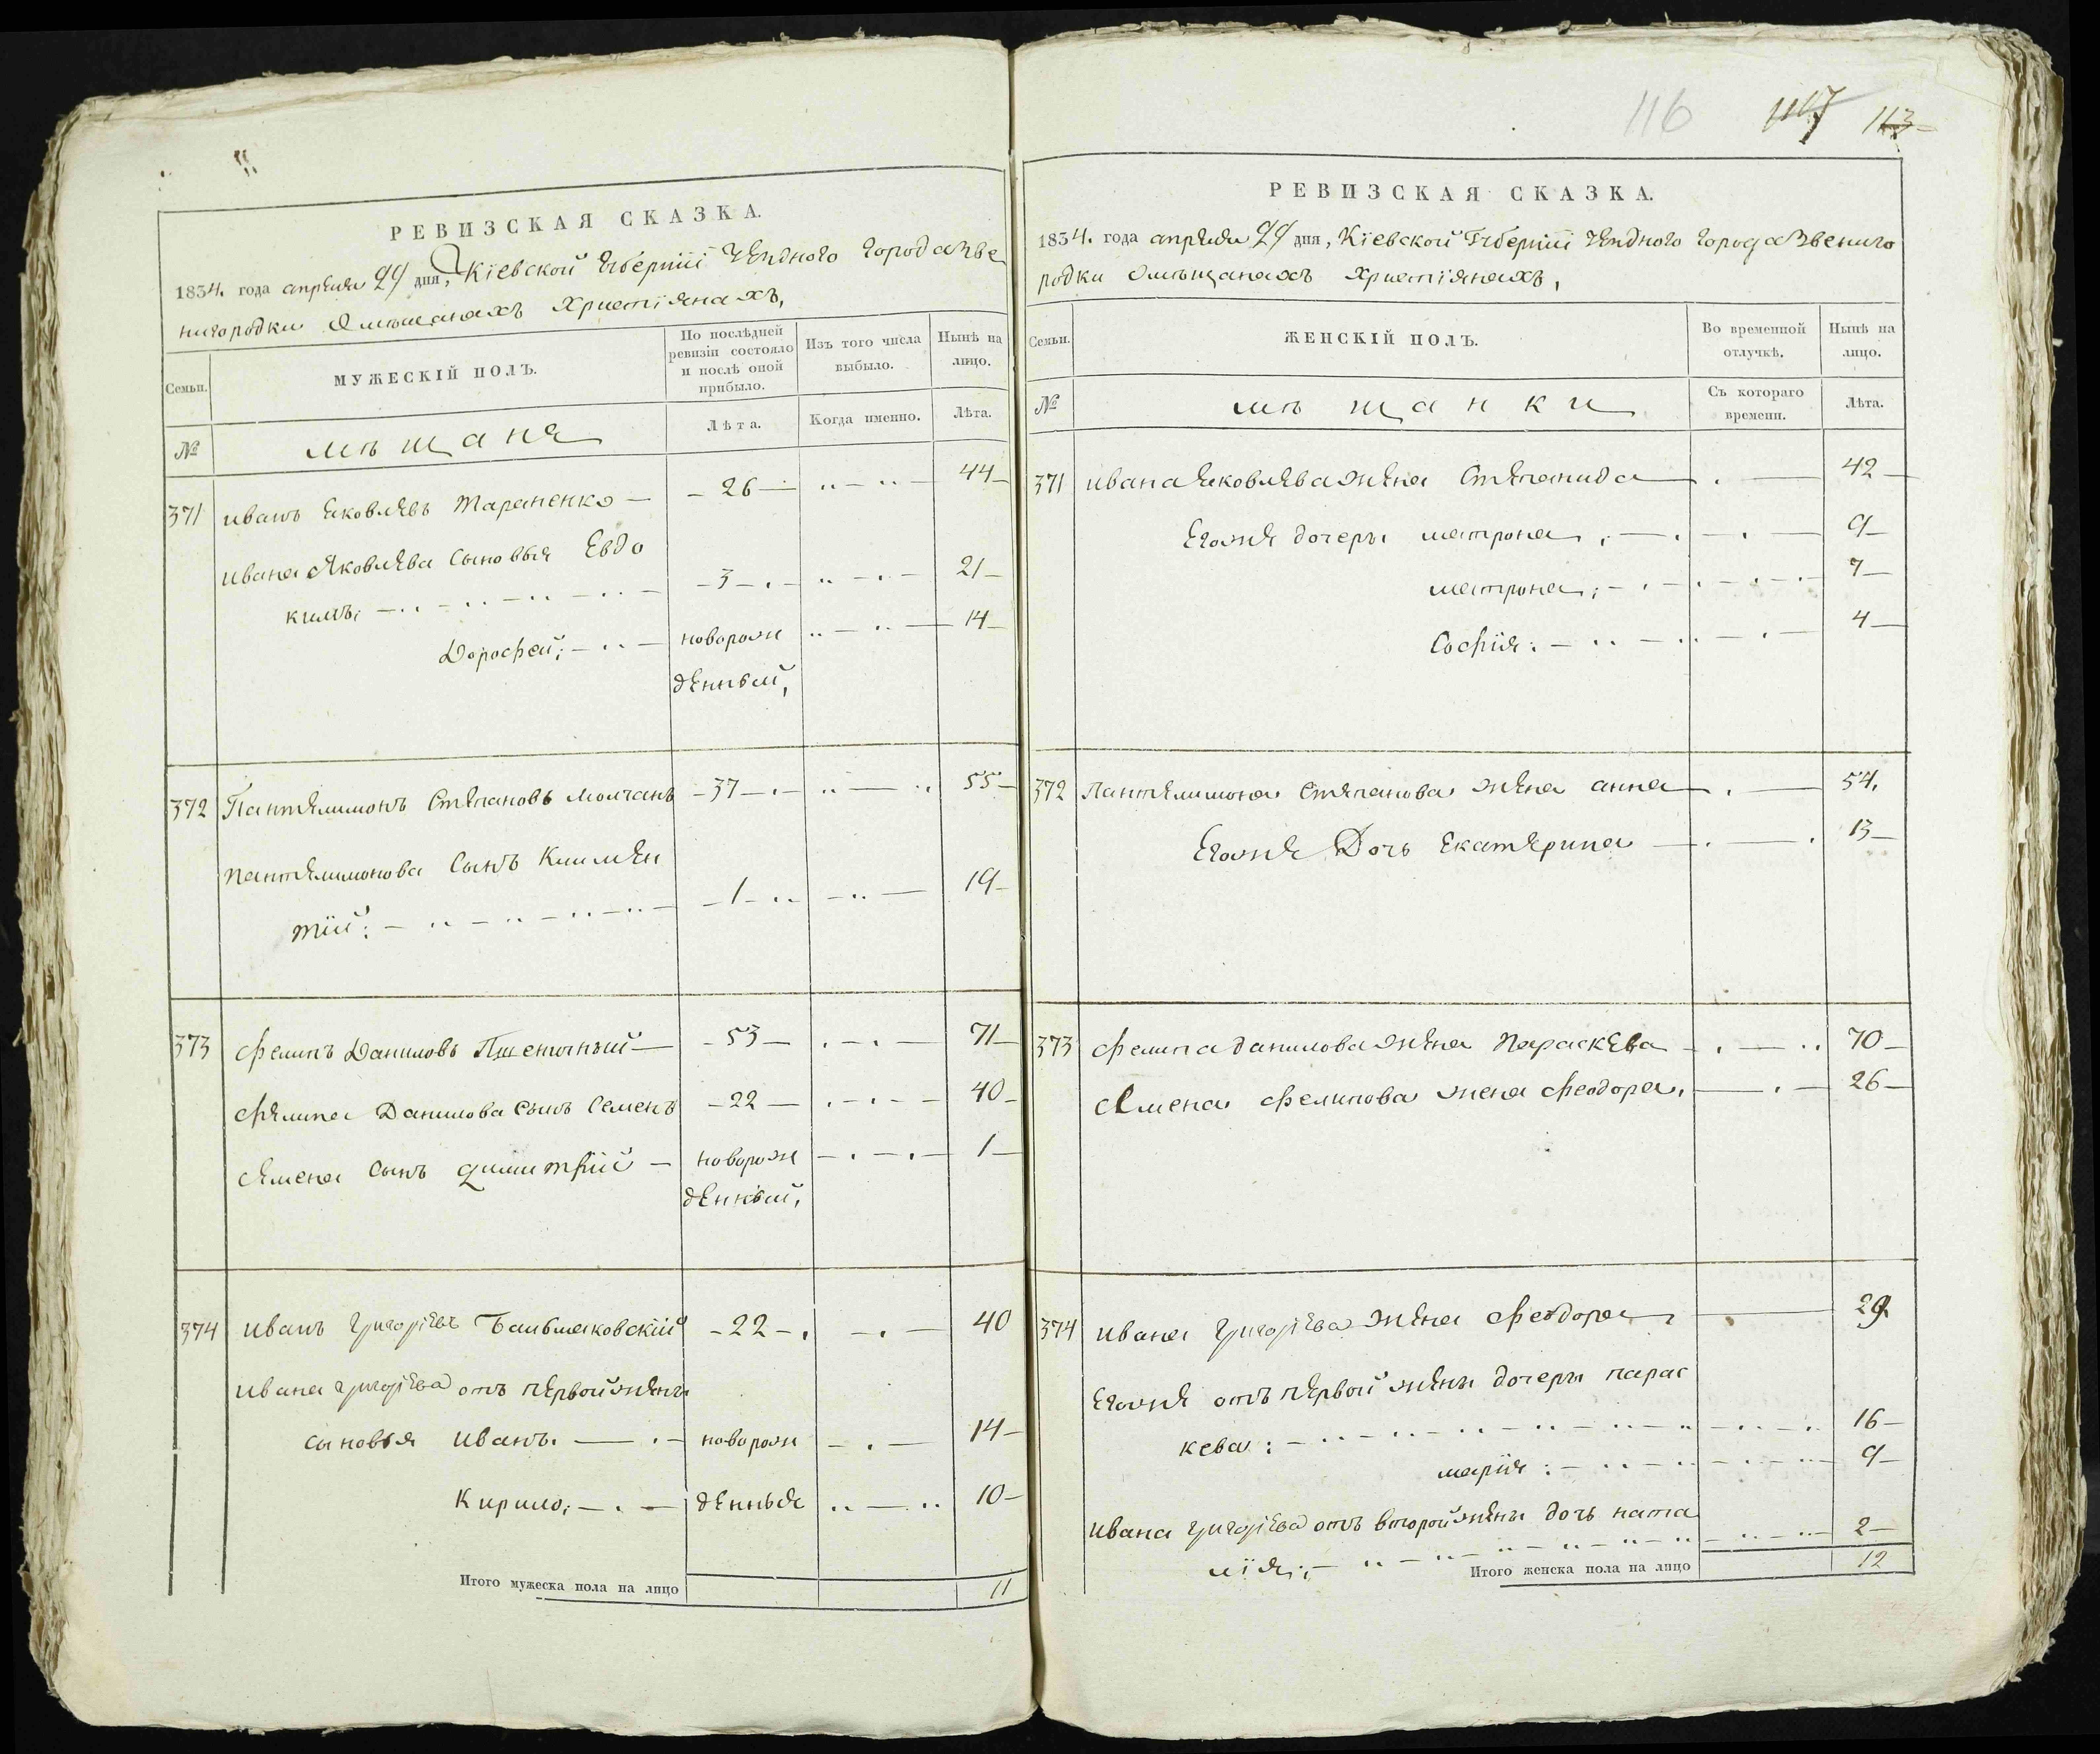 116 117 113
РЕВИЗСКАЯ СКАЗКА.
1834. года апреля 29 дня, Кіевской Губерніи уезднаго города Зве
нигородки о мѣщанахъ Христіянахъ,
Семьи.
МУЖЕСКІЙ ПОЛЪ.
По послѣдней ревизіи состояло и послѣ оной прибыло.
Изъ того числа выбыло.
Нынѣ на лицо.
№
мѣщане
Лѣта.
Когда именно.
Лѣта.
371 иванъ яковлевъ тараненко — 26 — 44
ивана яковлева сыновья Евдо
кимъ: — 3 — 21
Дорофей; — новорож 14
денный,
372 Пантелимонъ Степановъ молчанъ — 37 — 55
пантелимонова Сынъ Климен
тій: — 1 — 19
373 Фелипъ Даниловъ Пшеничный — 53 — 71
Фелипа Данилова сынъ Семенъ — 22 — 40
Семена Сынъ димитрій — новорож 1
денный,
374 иванъ григорьевъ — 22 — 40
ивана григорьева отъ первой жены
сыновья иванъ. — новорож — 14
Кирило; — денныя 10
Итого мужеска пола на лицо 11
РЕВИЗСКАЯ СКАЗКА.
1834. года апреля 29 дня, Кіевской Губерніи уезднаго города Звениго
родки о мѣщанахъ Христіянахъ,
Семьи.
ЖЕНСКІЙ ПОЛЪ.
Во временной отлучкѣ.
Нынѣ на лицо.
№
мѣщанки
Съ котораго времени.
Лѣта.
371 ивана яковлева жена Степанида 42
Егоже дочеры матрона, 9
матрона; 7
Софія: 4
372 Пантелимона Степанова жена анна 54.
Егоже Дочь Екатерина 13
373 Фелипа данилова жена Параскева 70
Семена Фелипова жена Феодора, 26
374 ивана григорьева жена Феодора, 29
Егоже отъ первой жены дочеры парас
кева: 16
марія: 9
ивана григорьева отъ второй жены дочь ната
лія; 2
Итого женска пола на лицо 12